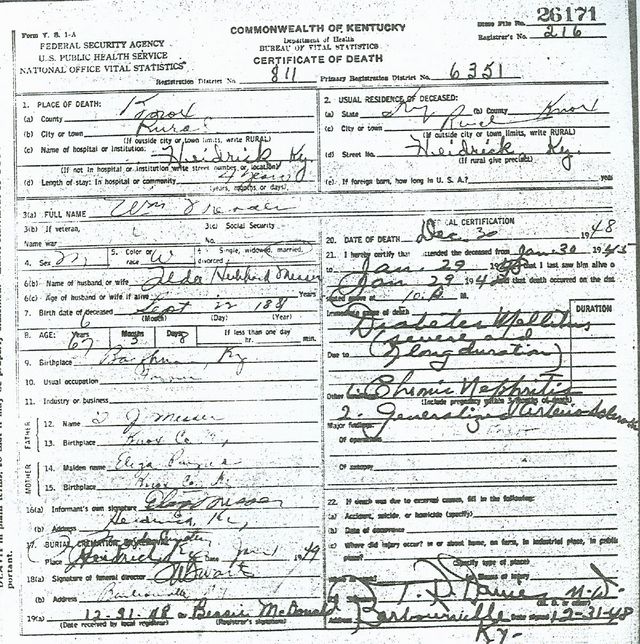 Form V. S. 1-A
FEDERAL SECURITY AGENCY
U. S. PUBLIC HEALTH SERVICE
NATIONAL OFFICE VITAL STATISTICS
COMMONWEALTH OF KENTUCKY
Department of Health
BUREAU OF VITAL STATISTICS
CERTIFICATE OF DEATH
State File No. 26171
Registrar's No. 216
Registration District No. 811 Primary Registration District No. 6351
1. PLACE OF DEATH:
(a) County Knox
(b) City or town Rural
(If outside city or town limits, write RURAL)
(c) Name of hospital or institution: Heidrick Ky.
(If not in hospital or institution write street number or location)
(d) Length of stay: In hospital or community years
(years, months or days)
2. USUAL RESIDENCE OF DECEASED:
(a) State Ky (b) County Knox
(c) City or town Rural
(If outside city or town limits, write RURAL)
(d) Street No. Heidrick Ky.
(If rural give precinct)
(e) If foreign born, how long in U. S. A.? years
3(a) FULL NAME Wm
3(b) If veteran,
Name war
3(c) Social Security
No.
4. Sex M 5. Color or race W 6(a) Single, widowed, married,
6(b) Name of husband or wife Hubbard Messer
6(c) Age of husband or wife if alive Years
7. Birth date of deceased Sept 22 1881
(Month) (Day) (Year)
8. AGE: Years 67 Months 3 Days 8 If less than one day
hr. min.
9. Birthplace Ky
10. Usual occupation
11. Industry or business
FATHER
12. Name J Messer
13. Birthplace Knox Co. Ky,
MOTHER
14. Maiden name Eliza
15. Birthplace Knox Co. Ky.
16(a) Informant's own signature Messer
(b) Address Heidrick, Ky,
17. BURIAL, CREMATION, OR REMOVAL
Place Heidrick Ky Date Jan 1 1949
18(a) Signature of funeral director
(b) Address Barbourville Ky
19(a) 12-31-48 (b) Bessie McDonald
(Date received by local registrar) (Registrar's signature)
MEDICAL CERTIFICATION
20. DATE OF DEATH Dec. 30 1948
21. I hereby certify that I attended the deceased from Jan. 30 1945
to Jan. 29 1948 that I last saw him alive on
Jan 29 1948 that death occurred on the date
stated above at 10 A M.
Immediate cause of death
Diabetes Mellitus
DURATION
Due to (severe and long duration)
Other conditions 1. Chronic Nephritis
(Include pregnancy within 3 months of death)
2. Generalized Arteriosclerosis
Major findings:
Of operations
Of autopsy
22. If death was due to external causes, fill in the following:
(a) Accident, suicide, or homicide (specify)
(b) Date of occurrence
(c) Where did injury occur? in or about home, on farm, in industrial place, in public place?
(Specify type of place)
Means of injury
M. D.
Address Barbourville Ky. Date signed 12-31-48